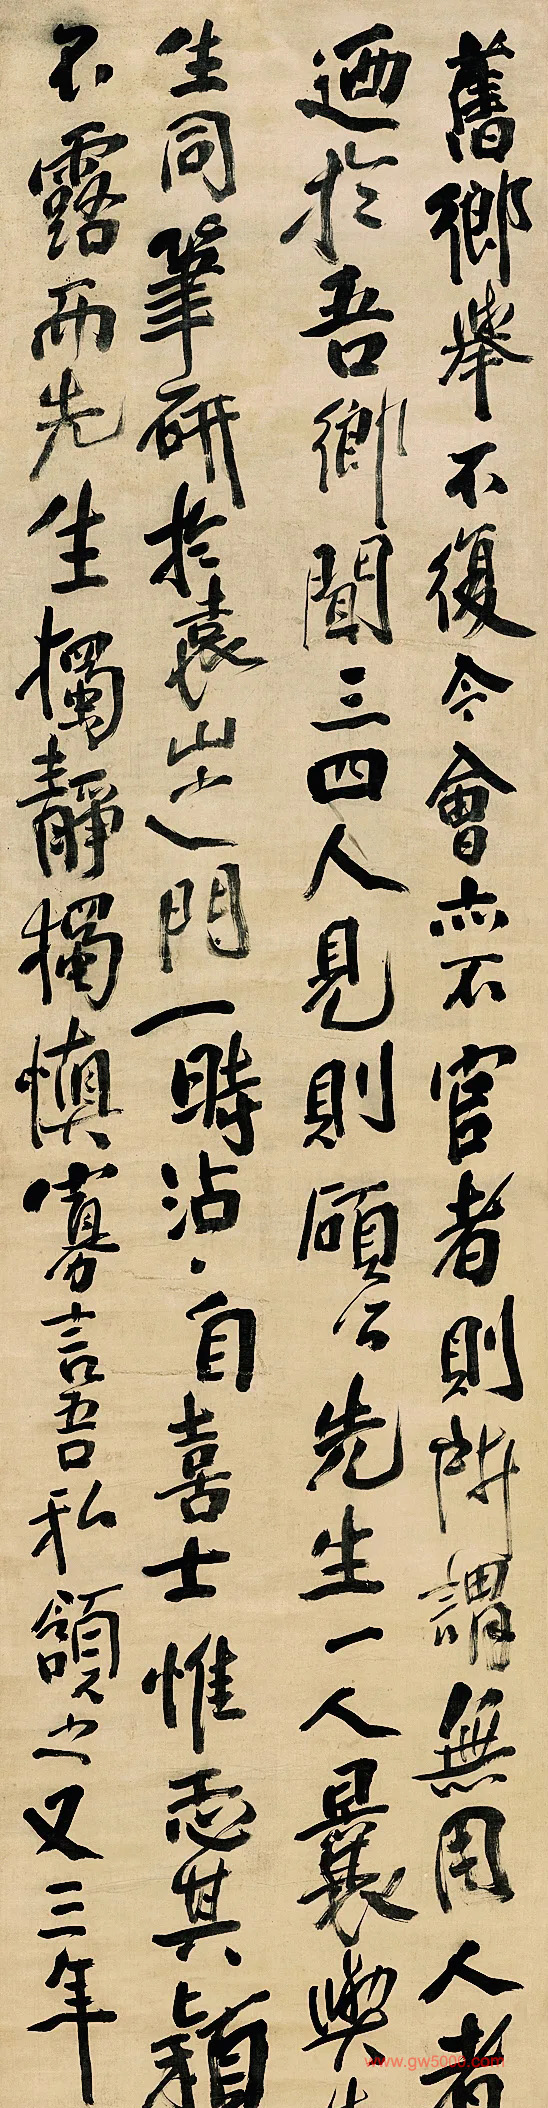 舊鄉舉不復令會亦不官者則所謂無用人者
迺於吾鄉聞三四人見則碩公先生一人曩與先
生同筆研於袁山之門一時沾沾自喜士惟恐其穎
不露而先生獨靜獨慎寡言吾私頷之又三年
www.gw5000.com